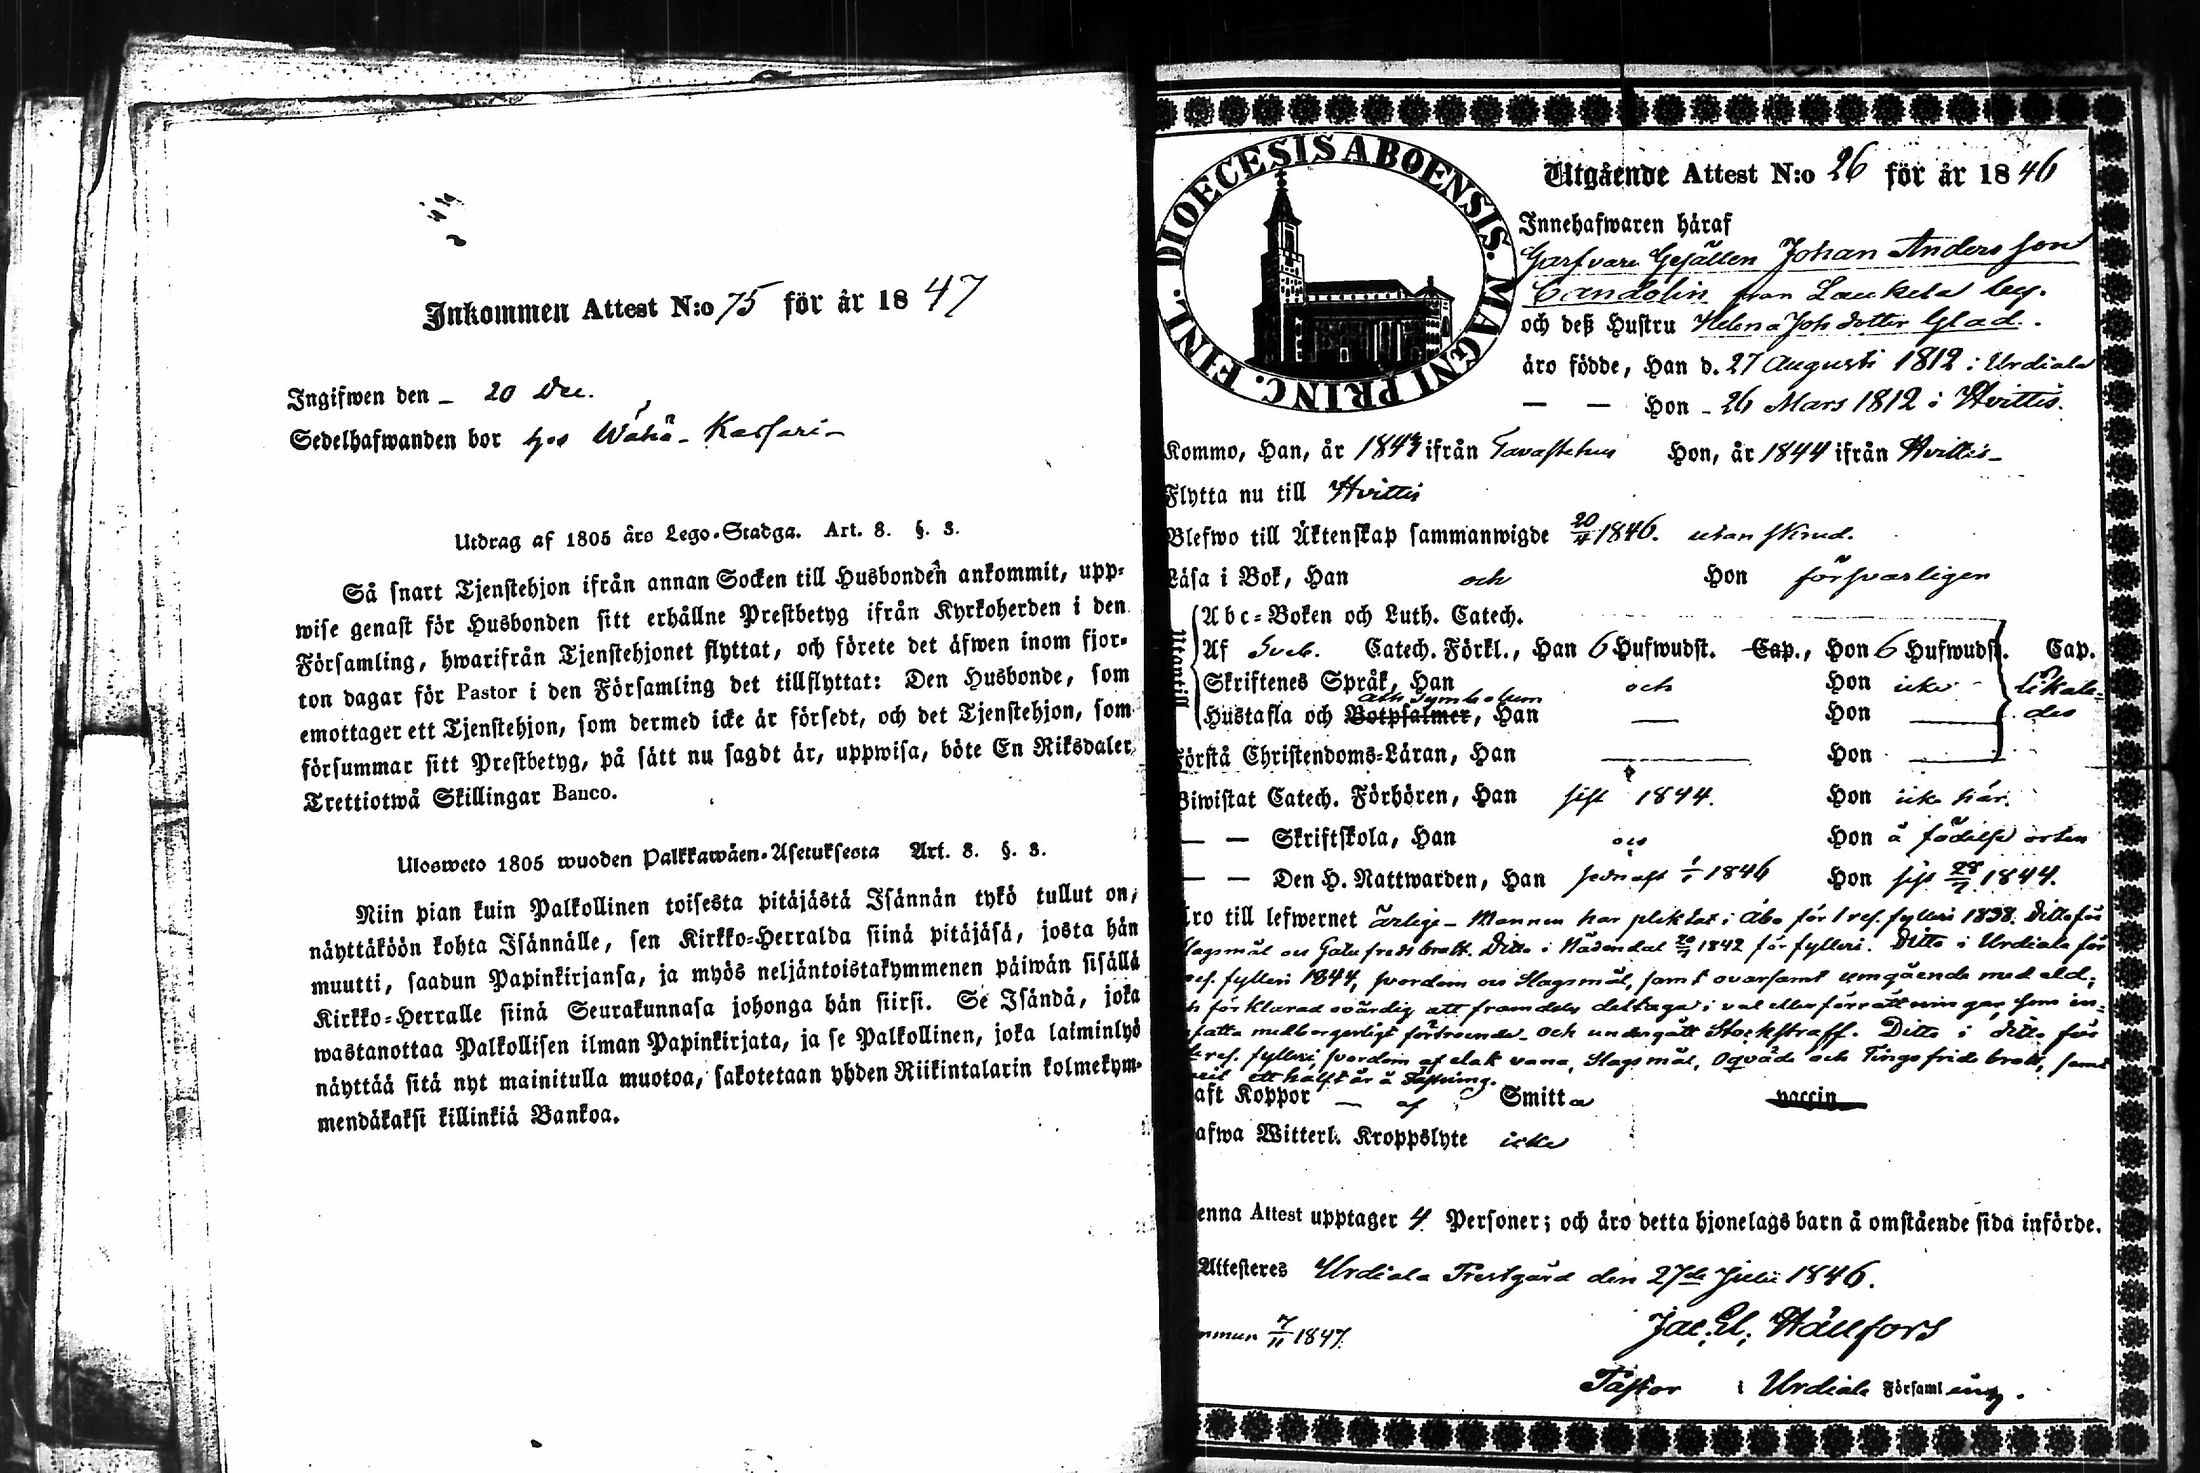 Inkommen Attest N:o 75 för år 1847
Ingifwen den – 20 Dec.
Sedelhafwanden bor hos Wähä-Kassari –
Utdrag af 1805 års Lego-Stadga. Art. 8. §. 3.
Så snart Tjenstehjon ifrån annan Socken till Husbonden ankommit, upp-
wise genast för Husbonden sitt erhållne Prestbetyg ifrån Kyrkoherden i den
Församling, hwarifrån Tjenstehjonet flyttat, och förete det äfwen inom fjor-
ton dagar för Pastor i den Församling det tillflyttat: Den Husbonde, som
emottager ett Tjenstehjon, som dermed icke är försedt, och det Tjenstehjon, som
försummar sitt Prestbetyg, på sätt nu sagdt är, uppwisa, böte En Riksdaler
Trettiotwå Skillingar Banco.
Ulosweto 1805 wuoden Palkkawäen-Asetuksesta Art. 8. §. 3.
Niin pian kuin Palkollinen toisesta pitäjästä Isännän tykö tullut on,
näyttäköön kohta Isännälle, sen Kirkko-Herralda siinä pitäjäsä, josta hän
muutti, saadun Papinkirjansa, ja myös neljäntoistakymmenen päiwän sisällä
Kirkko-Herralle siinä Seurakunnasa johonga hän siirsi. Se Isändä, joka
wastanottaa Palkollisen ilman Papinkirjata, ja se Palkollinen, joka laiminlyö
näyttää sitä nyt mainitulla muotoa, sakotetaan yhden Riikintalarin kolmekym-
mendäkaksi killinkiä Bankoa.
DIOECESIS ABOENSIS. MAGNI PRINC. FINL.
Utgående Attest N:o 26 för år 1846
Innehafwaren häraf
Garfvare Gesällen Johan Andersson
Candolin från Laukela by.
och deß Hustru Helena Johsdotter Glad.
äro födde, Han d. 27 Augusti 1812 i Urdiala
— — Hon – 26 Mars 1812 i Hvittis.
Kommo, Han, år 1843 ifrån Tavastehus Hon, år 1844 ifrån Hvittis –
Flytta nu till Hvittis
Blefwo till Äktenskap sammanwigde 20/4 1846. utan skrud.
Läsa i Bok, Han och Hon försvarligen
Utantill
Abc-Boken och Luth. Catech.
Af Sveb. Catech. Förkl., Han 6 Hufwudst. Cap., Hon 6 Hufwudst. Cap.
Skriftenes Språk, Han och Hon icke likale-
Ath. Symbolum
Hustafla och Botpsalmer, Han — Hon — des
Förstå Christendoms-Läran, Han — Hon —
Biwistat Catech. Förhören, Han sist 1844. Hon icke här.
— — Skriftskola, Han och Hon å födelse orten
— — Den H. Nattwarden, Han sednast 1/1 1846 Hon sist 28/7 1844.
äro till lefwernet ärlige – Mannen har pliktat i Åbo för 1 res. fylleri 1838. Ditto för
slagsmål och Gatu fredsbrott. Ditto i Nådendal 1842 för fylleri. Ditto i Urdiala för
res. fylleri 1844, svordom och slagsmål, samt ovarsamt umgående med eld,
förklarad ovärdig att framdeles deltaga i val eller förrättningar, som in-
fatta medborgerligt förtroende och undergått Stockstraff. Ditto i ditto för
res. fylleri, svordom af elak vana, slagsmål, oqväde och Tingsfridsbrott, samt
ett halft år å Fästning.
haft Koppor — af Smitta vaccin
Hafwa Witterl. Kroppslyte icke
Denna Attest upptager 4 Personer; och äro detta hjonelags barn å omstående sida införde.
Attesteres Urdiala Prestgård den 27de Julii 1846.
1847.
Jac. Hällfors
Pastor i Urdiala Församling.